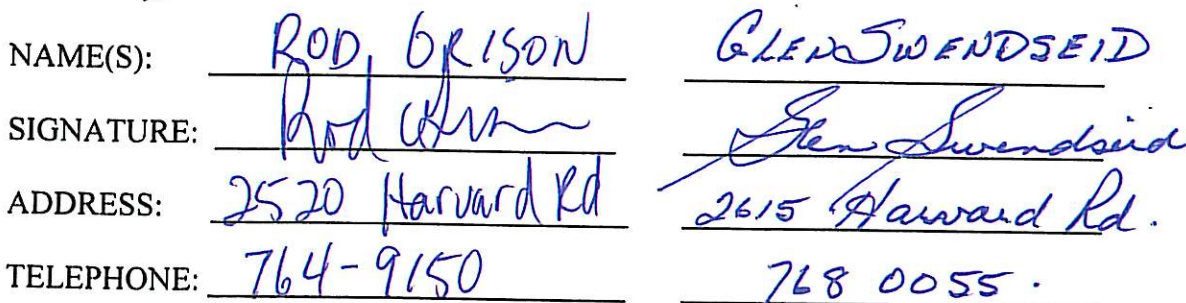 NAME(S): ROD GRISON GLEN SWENDSEID
SIGNATURE: Rod Glen Swendseid
ADDRESS: 2520 Harvard Rd 2615 Harvard Rd.
TELEPHONE: 764-9150 768 0055.